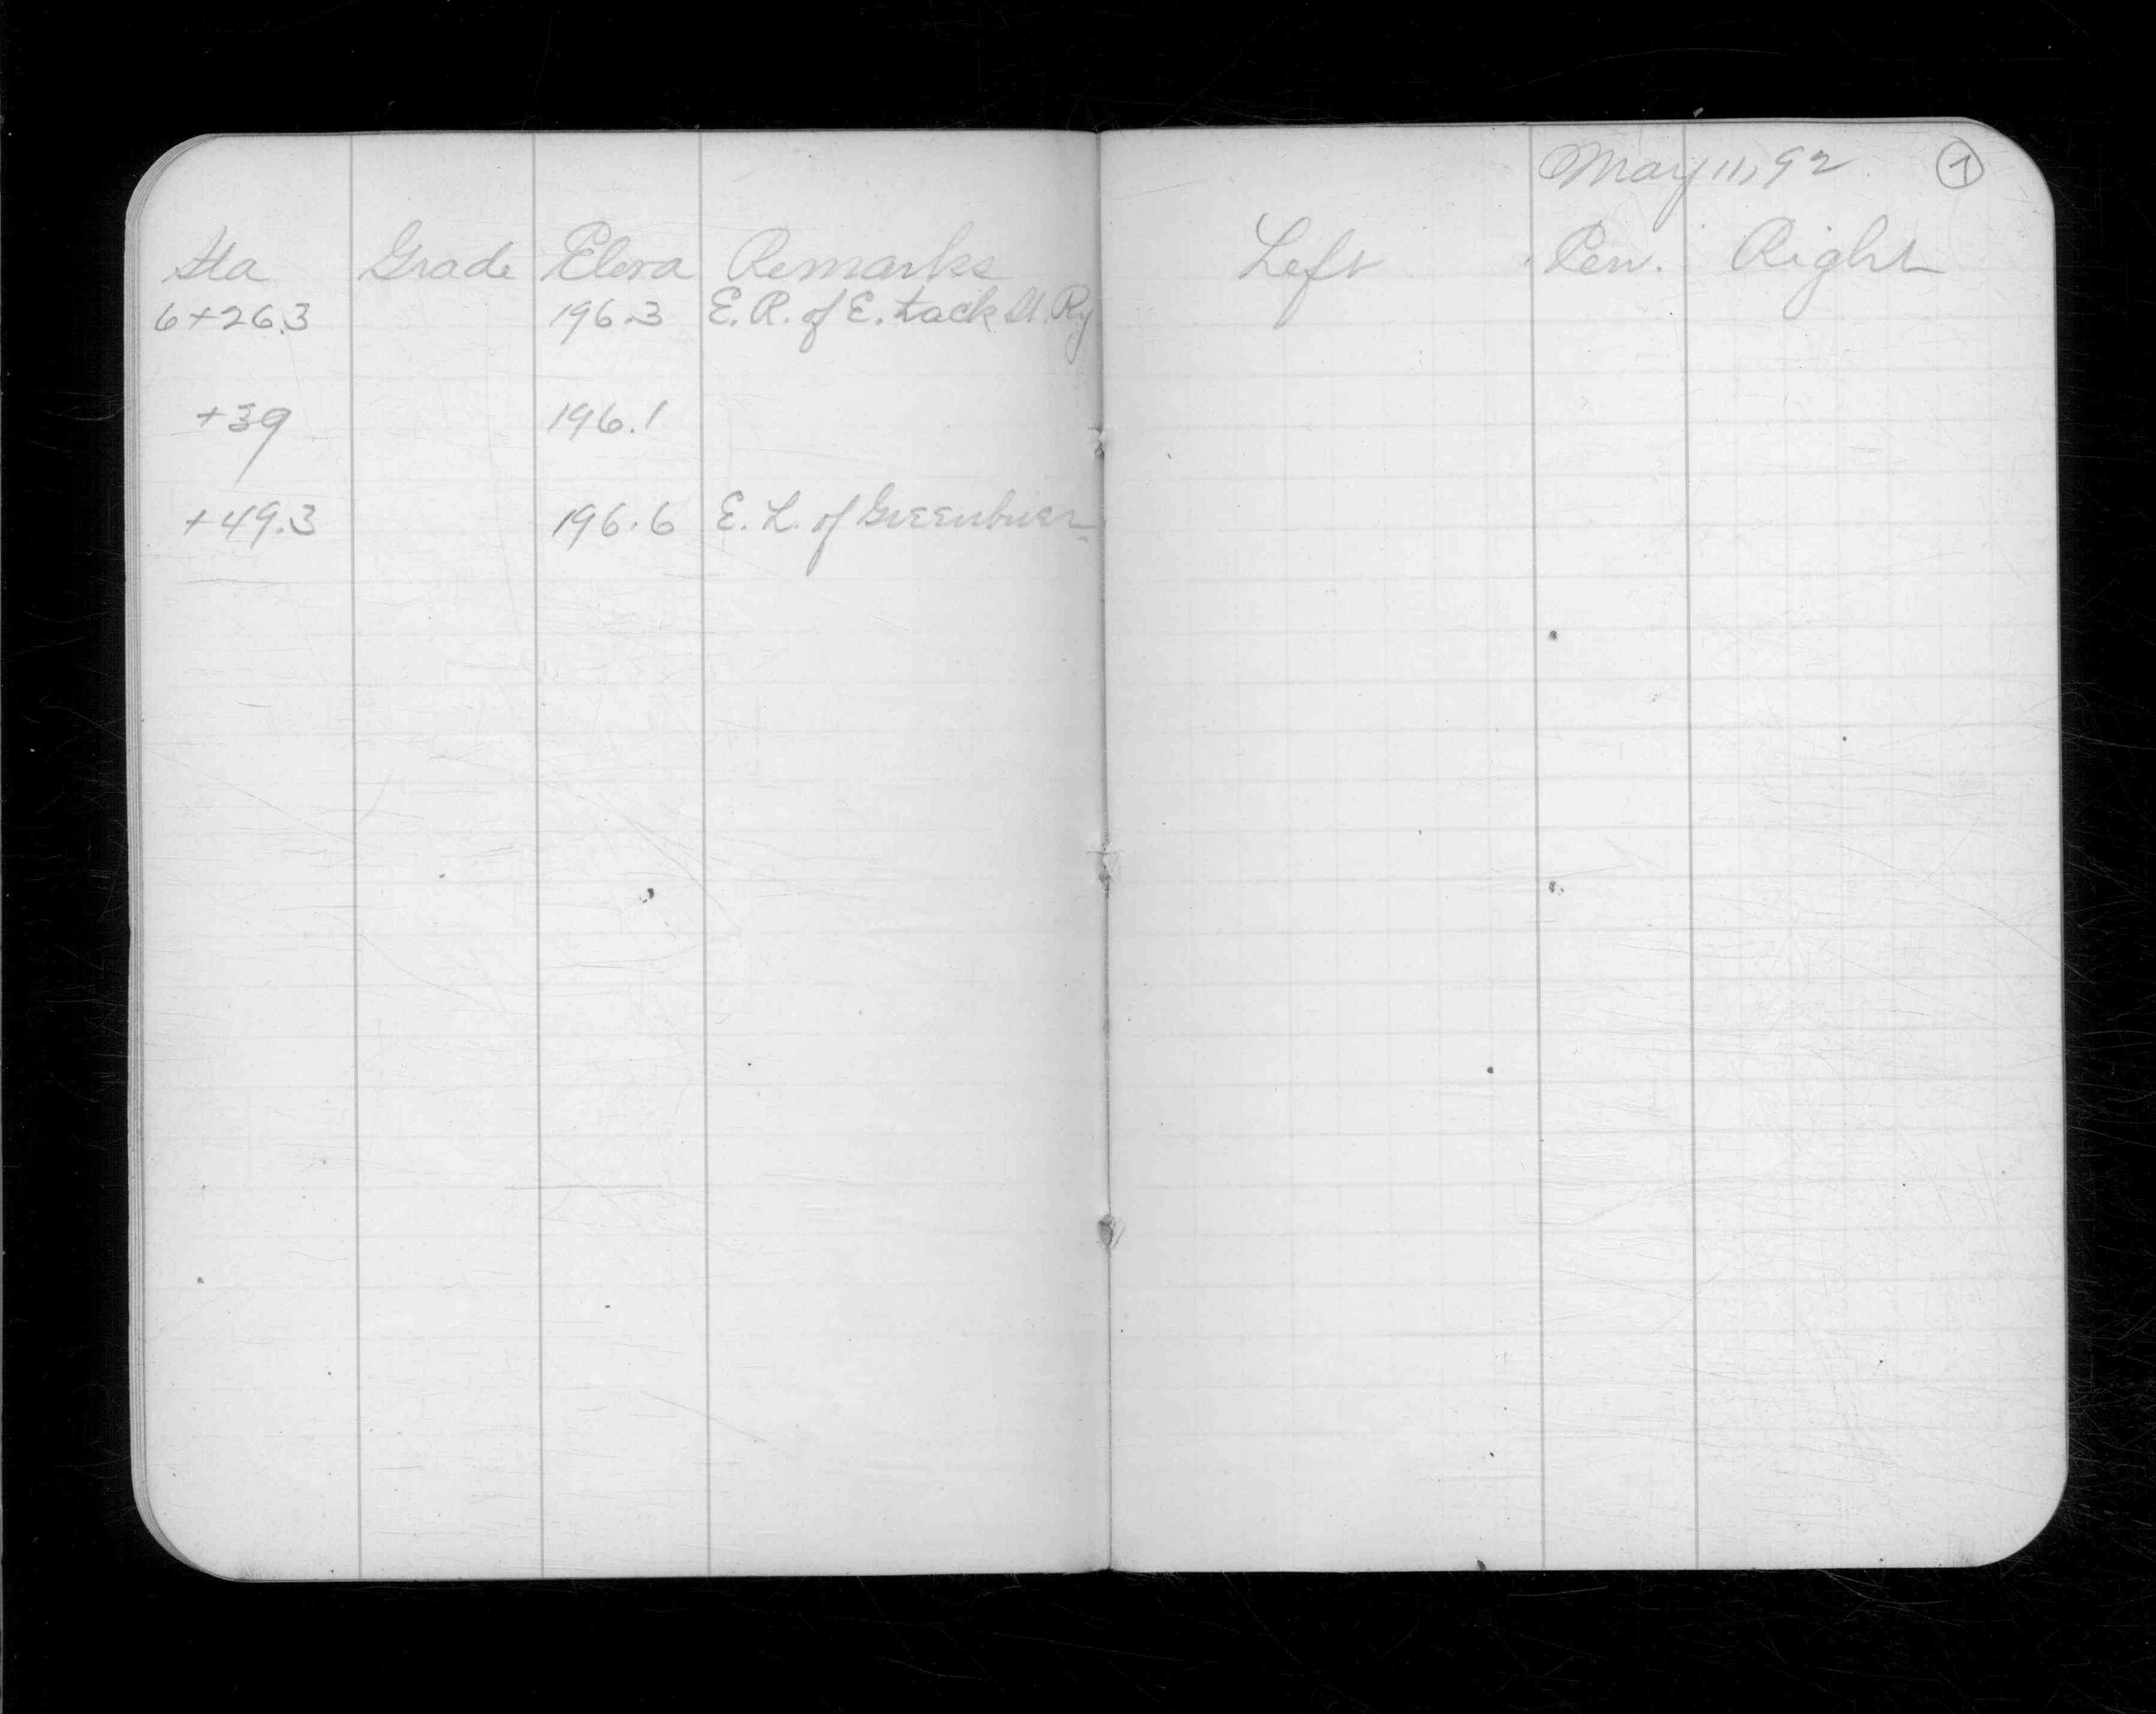 May 11, 92 1
Sta Grade Eleva Remarks Left Cen. Right
6+26.3 196.3 E. R. of E. track St. Ry
+39 196.1
+49.3 196.6 E. L. of Greenbrier